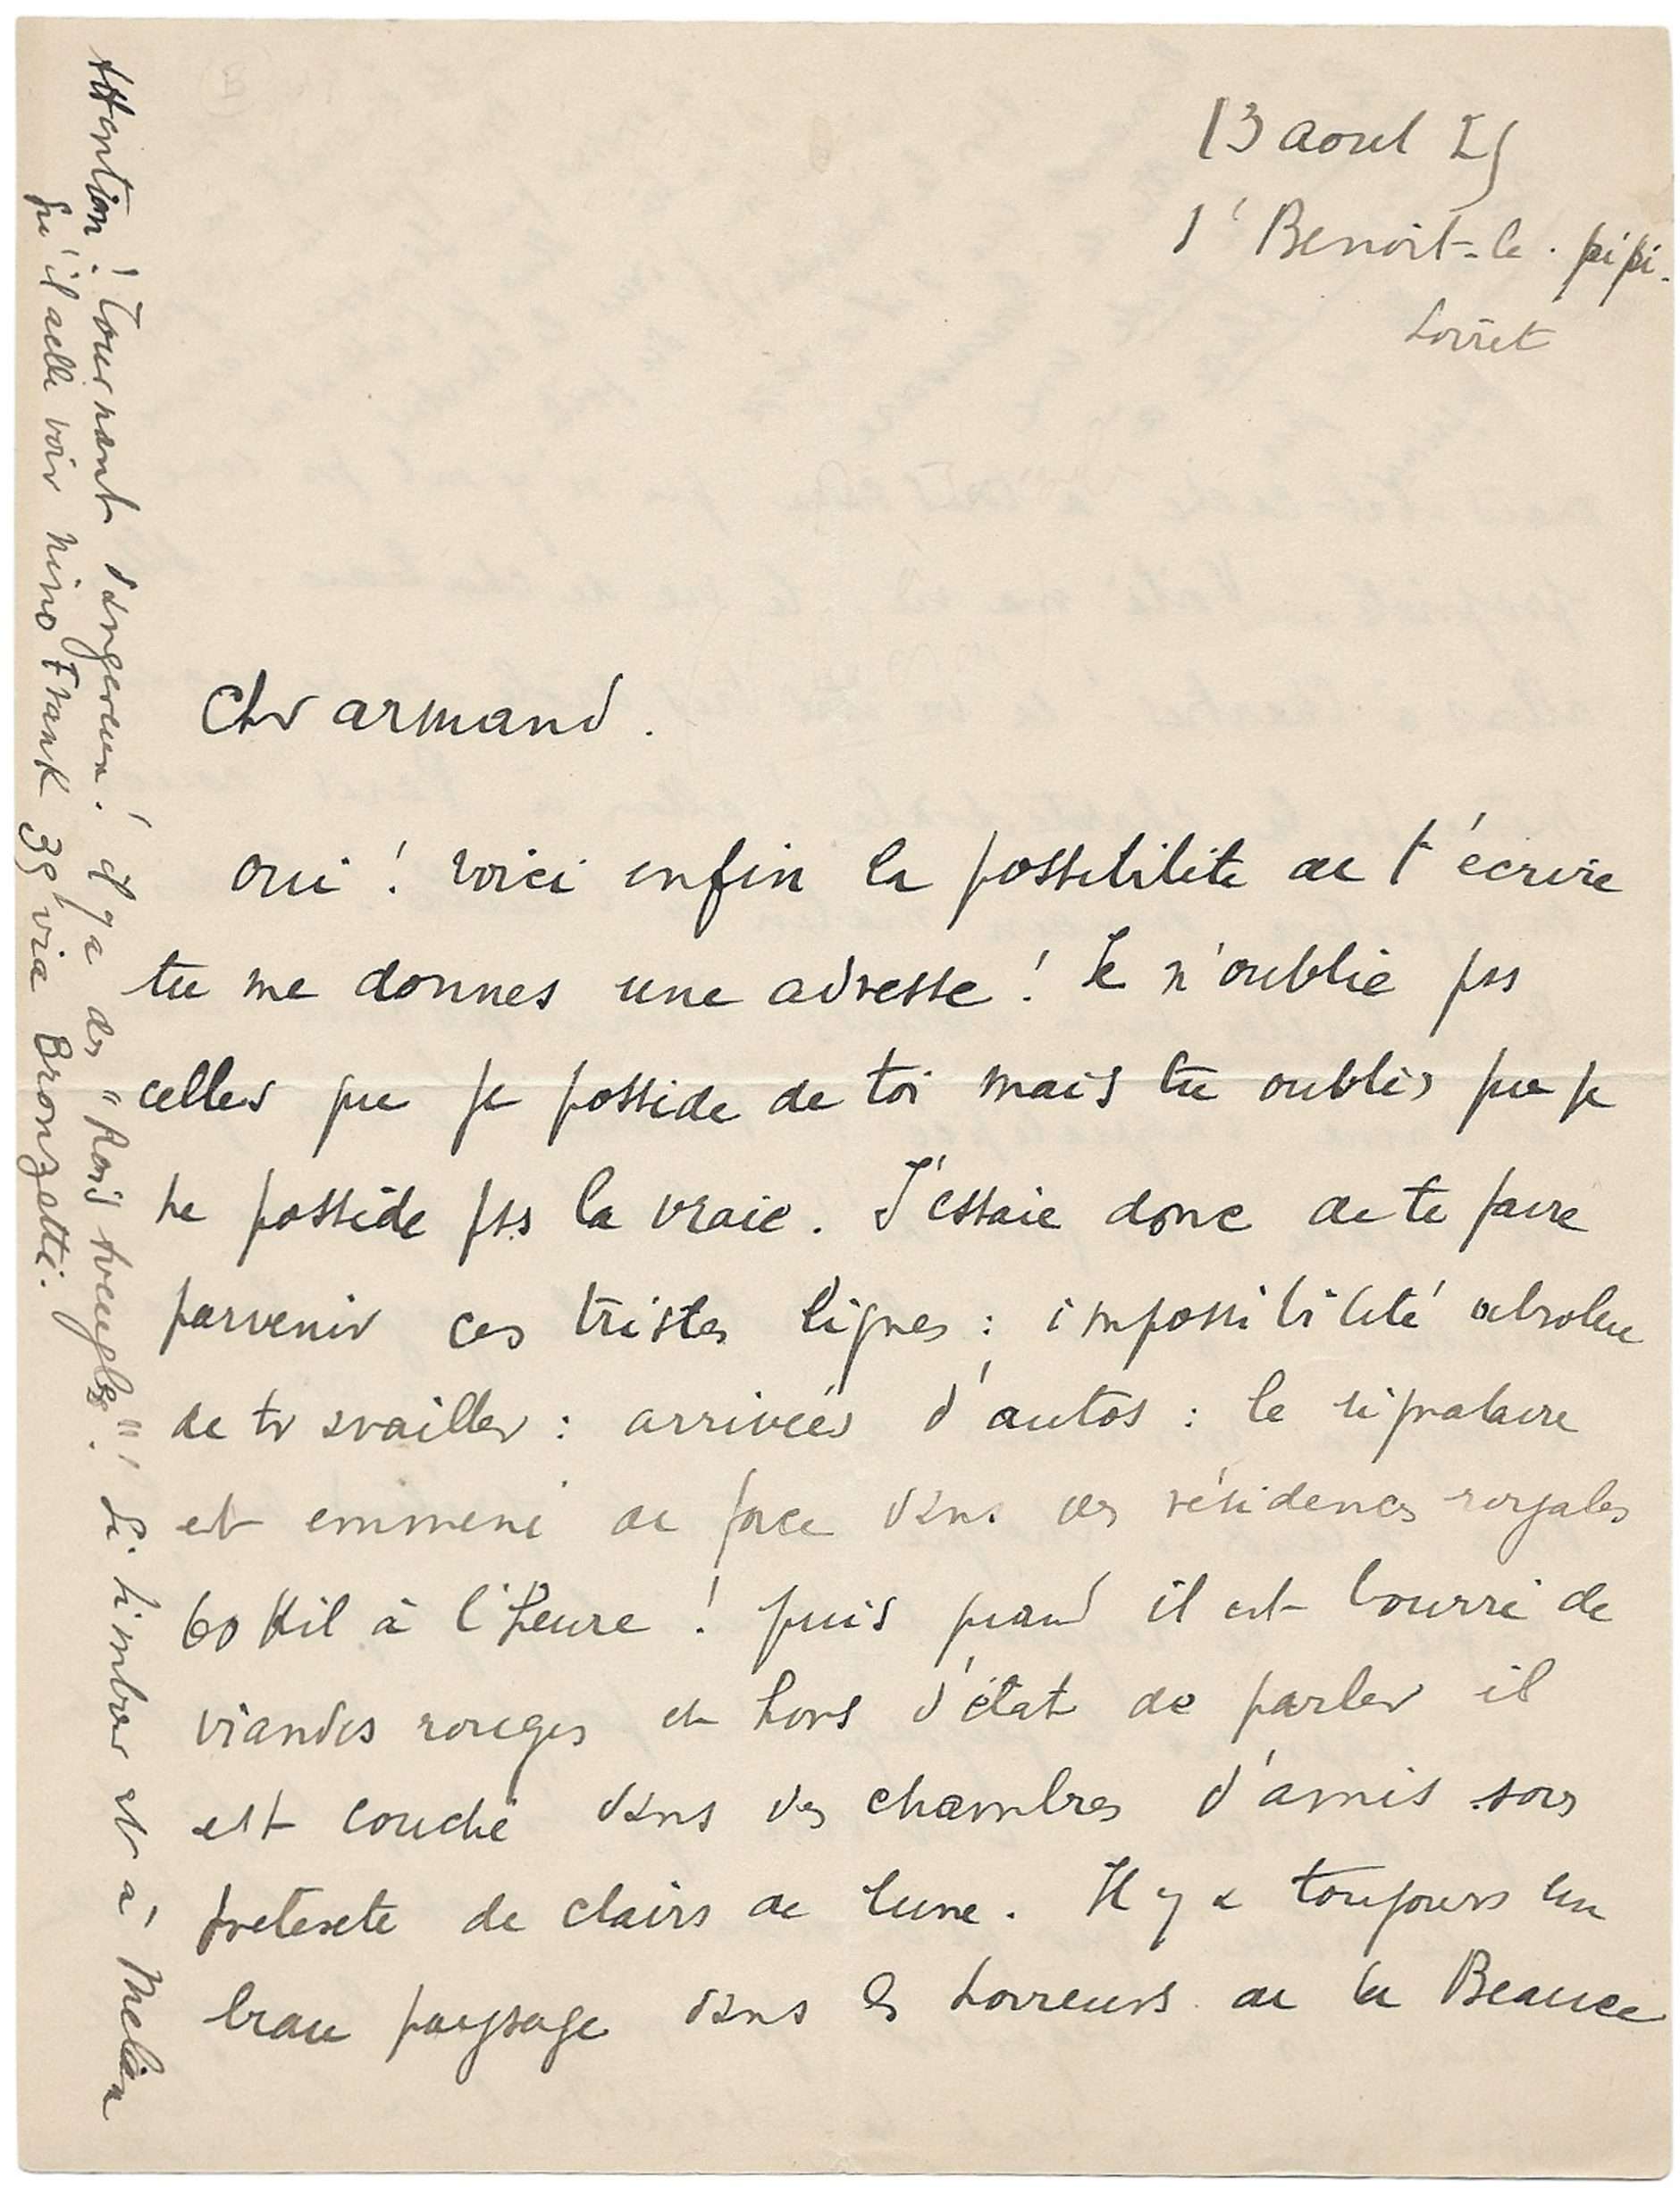 13 aout 25
St Benoit-le-pipi-
Loiret
Cher armand.
oui ! voici enfin la possibilité de t'écrire
tu me donnes une adresse ! Je n'oublie pas
celles que je possède de toi mais tu oublies que je
ne possède pas la vraie. J'essaie donc de te faire
parvenir ces tristes lignes : impossibilité absolue
de travailler : arrivées d'autos : le signataire
est emmené de force dans des résidences royales
60 Kil à l'heure ! puis quand il est bourré de
viandes rouges et hors d'état de parler il
est couché dans des chambres d'amis sous
pretexte de clairs de lune. Il y a toujours un
beau paysage dans les horreurs de la Beauce
Attention ! Tournant dangereux ! il y a des "Rois aveugles" ! Si himbour est à
qu'il aille voir Nino Frank 39 via Bronzetti.